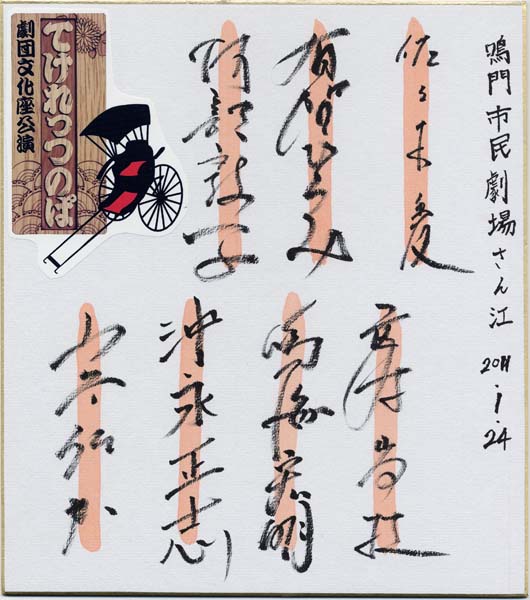 鳴門市民劇場さん江
2011.1.24
佐々木愛
有賀ひろみ
阿部敦子
高村尚枝
鳴海宏明
沖永正志
てけれっつのぱ
劇団文化座公演